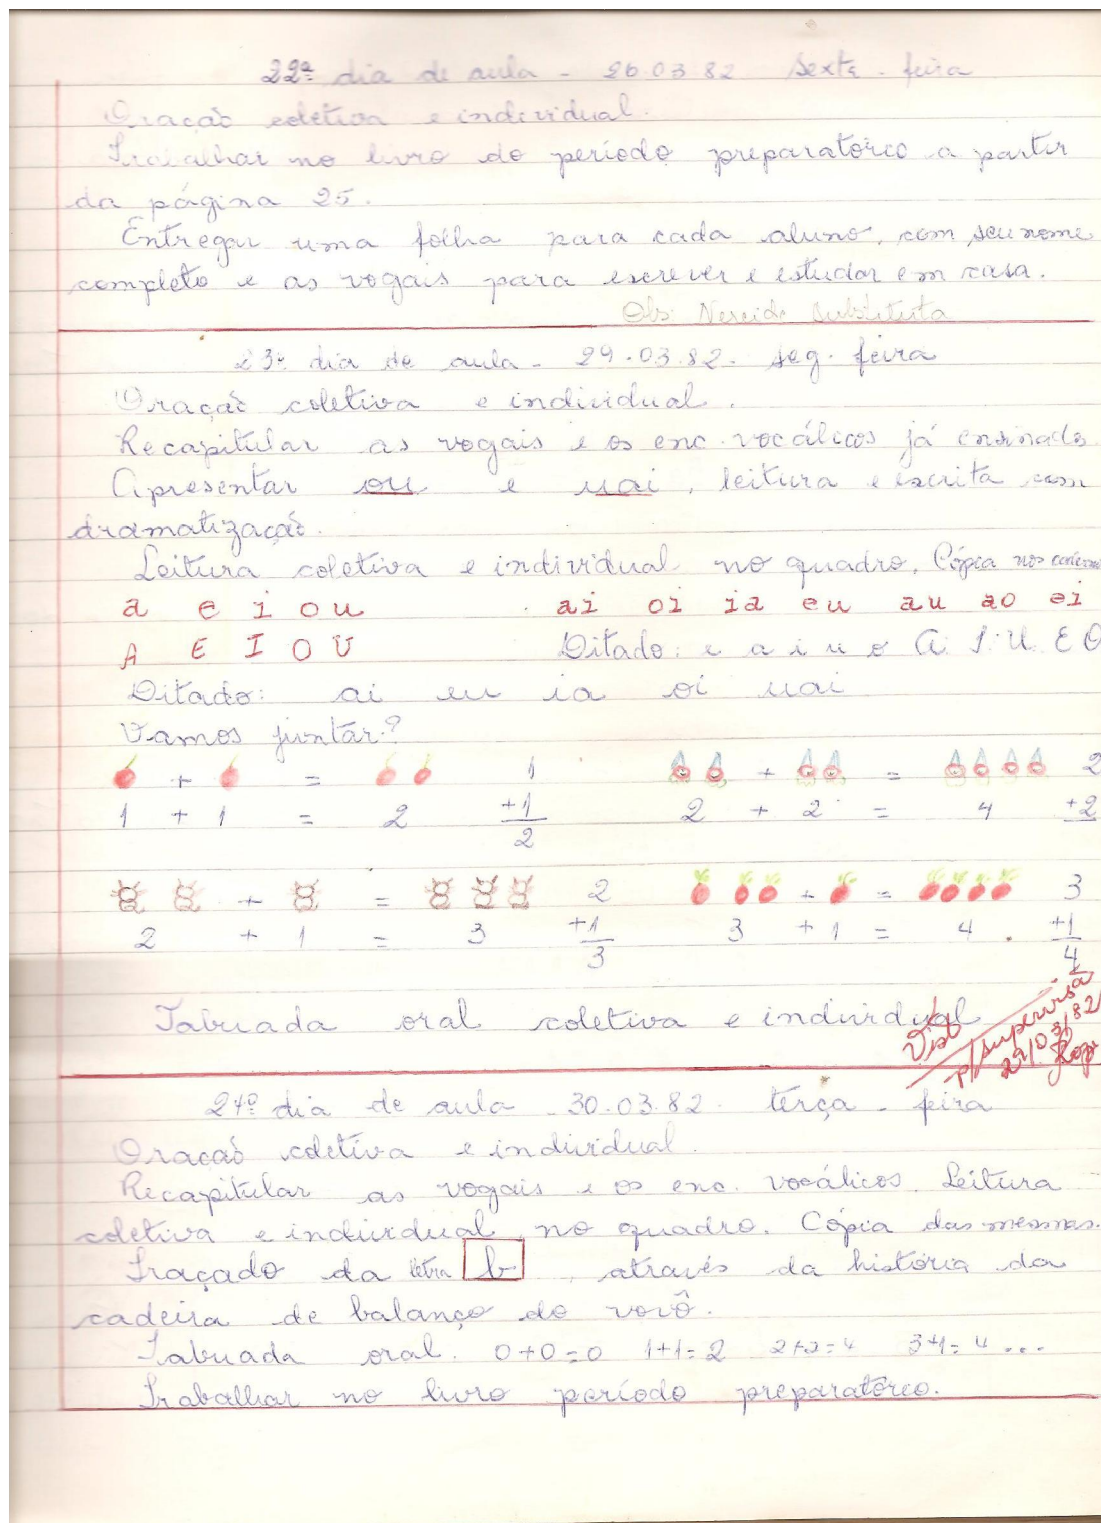 22ª dia de aula - 26.03.82 Sexta-feira
Oração coletiva e individual.
Trabalhar no livro do período preparatório a partir
da página 25.
Entregar uma folha para cada aluno, com seu nome
completo e as vogais para escrever e estudar em casa.
Obs: Nereide Substituta
23º dia de aula - 29.03.82. seg. feira
Oração coletiva e individual.
Recapitular as vogais e os enc. vocálicos já ensinado
Apresentar ou e uai, leitura e escrita com
dramatização.
Leitura coletiva e individual no quadro. Cópia nos
a e i o u ai oi ia eu au ao ei
A E I O U Ditado: e a i u o A. I. U. E O
Ditado: ai eu ia oi uai
Vamos juntar?
+ = 1 + = 2
1 + 1 = 2 +1 2 + 2 = 4 +2
2
+ = 2 + = 3
2 + 1 = 3 +1 3 + 1 = 4. +1
3 4
Tabuada oral coletiva e individual
Visto
p/ supervisã
29/03/82
24º dia de aula - 30.03.82. terça-feira
Oração coletiva e individual.
Recapitular as vogais e os enc. vocálicos. Leitura
coletiva e individual no quadro. Cópia das mesmas.
Traçado da letra b, através da história da
cadeira de balanço do vovô.
Tabuada oral. 0+0=0 1+1=2 2+2=4 3+1=4...
Trabalhar no livro período preparatório.